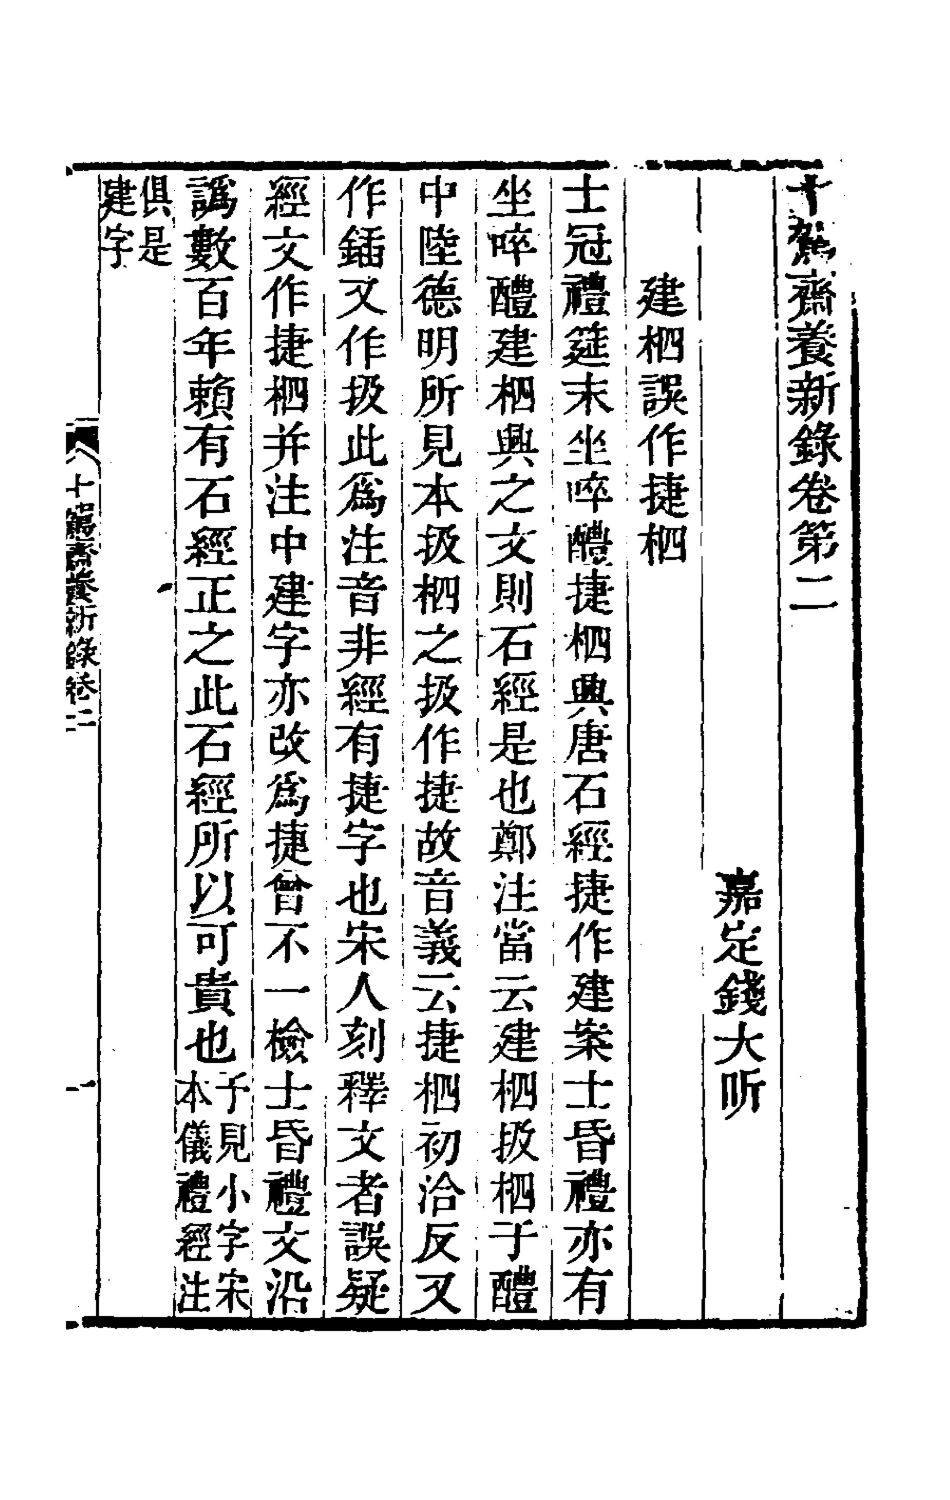 十駕齋養新錄卷第二
嘉定錢大昕
建柶誤作捷柶
士冠禮筵末坐啐醴捷柶興唐石經捷作建案士昏禮亦有
坐啐醴建柶興之文則石經是也鄭注當云建柶扱柶于醴
中陸德明所見本扱柶之扱作捷故音義云捷柶初洽反又
作鍤又作扱此爲注音非經有捷字也宋人刻釋文者誤疑
經文作捷柶并注中建字亦改爲捷曾不一檢士昏禮文沿
譌數百年賴有石經正之此石經所以可貴也予見小字宋本儀禮經注
俱是建字
十駕齋養新錄卷二
一